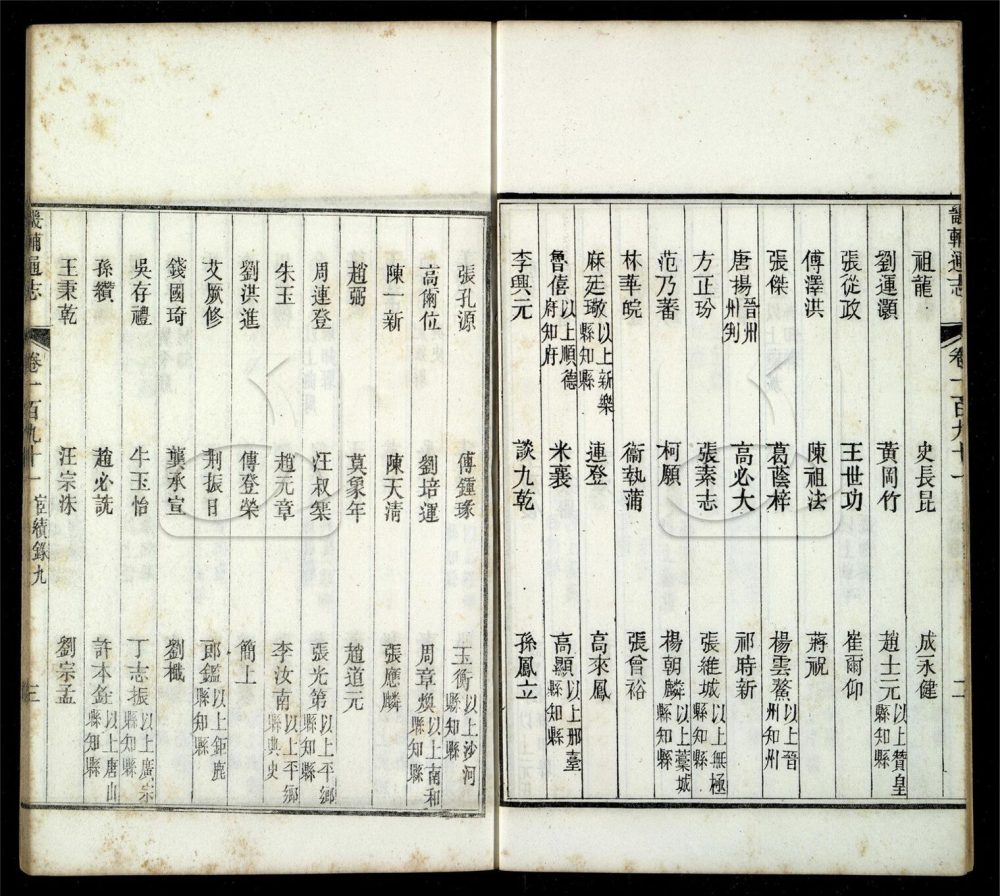 畿輔通志 卷一百九十一 二
祖龍 史長昆 成永健
劉運灝 黃岡竹 趙士元 以上贊皇縣知縣
張從政 王世功 崔爾仰
傅澤洪 陳祖法 蔣祝
張傑 葛蔭梓 楊雲鶖 以上晉州知州
唐揚 晉州州判 高必大 祁時新
方正玢 張素志 張維城 以上無極縣知縣
范乃蕃 柯願 楊朝麟 以上藁城縣知縣
林華皖 衞執蒲 張曾裕
麻廷璥 以上新樂縣知縣 連登 高來鳳
魯僖 以上順德府知府 米襄 高顯 以上邢臺縣知縣
李興元 談九乾 孫鳳立
張孔源 傅鍾琭 玉衡 以上沙河縣知縣
高衛位 劉培運 周章煥 以上南和縣知縣
陳一新 陳天清 張應麟
趙弼 莫象年 趙道元
周連登 汪叔棨 張光第 以上平鄉縣知縣
朱玉 趙元章 李汝南 以上平鄉縣典史
劉洪進 傅登榮 簡上
艾厥修 荆振日 郎鑑 以上鉅鹿縣知縣
錢國琦 龔承宣 劉檝
吳存禮 牛玉怡 丁志振 以上廣宗縣知縣
孫纘 趙必詵 許本銓 以上唐山縣知縣
王秉乾 汪宗洙 劉宗孟
畿輔通志 卷一百九十一 宦績錄九